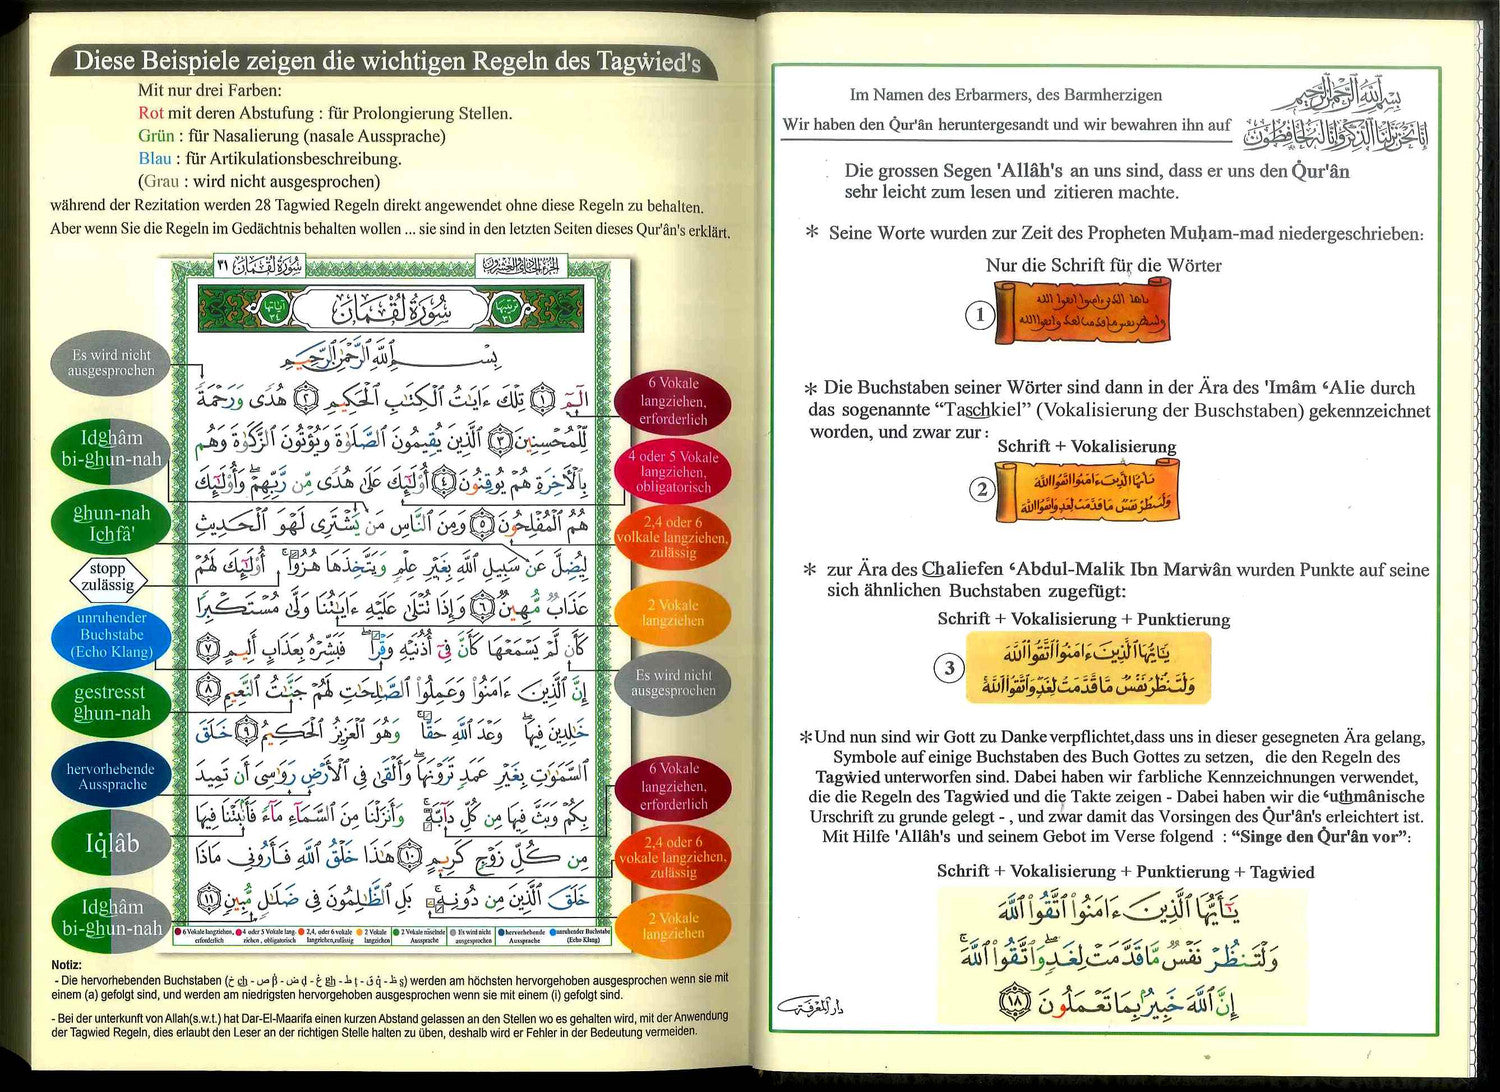 Diese Beispiele zeigen die wichtigen Regeln des Tagẇied's
Mit nur drei Farben:
Rot mit deren Abstufung : für Prolongierung Stellen.
Grün : für Nasalierung (nasale Aussprache)
Blau : für Artikulationsbeschreibung.
(Grau : wird nicht ausgesprochen)
während der Rezitation werden 28 Tagwied Regeln direkt angewendet ohne diese Regeln zu behalten.
Aber wenn Sie die Regeln im Gedächtnis behalten wollen ... sie sind in den letzten Seiten dieses Qur'ân's erklärt.
سُورَةُ لُقْمَان ٣١
الجزء الحادي والعشرون
ترتيبها ٣١
سُورَةُ لُقْمَان
آياتها ٣٤
بِسْمِ اللَّهِ الرَّحْمَٰنِ الرَّحِيمِ
الٓمٓ ١ تِلْكَ ءَايَٰتُ ٱلْكِتَٰبِ ٱلْحَكِيمِ ٢ هُدًى وَرَحْمَةً
لِّلْمُحْسِنِينَ ٣ ٱلَّذِينَ يُقِيمُونَ ٱلصَّلَوٰةَ وَيُؤْتُونَ ٱلزَّكَوٰةَ وَهُم
بِٱلْأَخِرَةِ هُمْ يُوقِنُونَ ٤ أُو۟لَٰٓئِكَ عَلَىٰ هُدًى مِّن رَّبِّهِمْ ۖ وَأُو۟لَٰٓئِكَ
هُمُ ٱلْمُفْلِحُونَ ٥ وَمِنَ ٱلنَّاسِ مَن يَشْتَرِى لَهْوَ ٱلْحَدِيثِ
لِيُضِلَّ عَن سَبِيلِ ٱللَّهِ بِغَيْرِ عِلْمٍ وَيَتَّخِذَهَا هُزُوًا ۚ أُو۟لَٰٓئِكَ لَهُمْ
عَذَابٌ مُّهِينٌ ٦ وَإِذَا تُتْلَىٰ عَلَيْهِ ءَايَٰتُنَا وَلَّىٰ مُسْتَكْبِرًا
كَأَن لَّمْ يَسْمَعْهَا كَأَنَّ فِىٓ أُذُنَيْهِ وَقْرًا ۖ فَبَشِّرْهُ بِعَذَابٍ أَلِيمٍ ٧
إِنَّ ٱلَّذِينَ ءَامَنُوا۟ وَعَمِلُوا۟ ٱلصَّٰلِحَٰتِ لَهُمْ جَنَّٰتُ ٱلنَّعِيمِ ٨
خَٰلِدِينَ فِيهَا ۖ وَعْدَ ٱللَّهِ حَقًّا ۚ وَهُوَ ٱلْعَزِيزُ ٱلْحَكِيمُ ٩ خَلَقَ
ٱلسَّمَٰوَٰتِ بِغَيْرِ عَمَدٍ تَرَوْنَهَا ۖ وَأَلْقَىٰ فِى ٱلْأَرْضِ رَوَٰسِىَ أَن تَمِيدَ
بِكُمْ وَبَثَّ فِيهَا مِن كُلِّ دَآبَّةٍ ۚ وَأَنزَلْنَا مِنَ ٱلسَّمَآءِ مَآءً فَأَنۢبَتْنَا فِيهَا
مِن كُلِّ زَوْجٍ كَرِيمٍ ١٠ هَٰذَا خَلْقُ ٱللَّهِ فَأَرُونِى مَاذَا
خَلَقَ ٱلَّذِينَ مِن دُونِهِۦ ۚ بَلِ ٱلظَّٰلِمُونَ فِى ضَلَٰلٍ مُّبِينٍ ١١
Es wird nicht
ausgesprochen
Idghâm
bi-ghun-nah
ghun-nah
Ichfâ'
stopp
zulässig
unruhender
Buchstabe
(Echo Klang)
gestresst
ghun-nah
hervorhebende
Aussprache
Iqlâb
Idghâm
bi-ghun-nah
6 Vokale
langziehen,
erforderlich
4 oder 5 Vokale
langziehen,
obligatorisch
2,4 oder 6
volkale langziehen,
zulässig
2 Vokale
langziehen
Es wird nicht
ausgesprochen
6 Vokale
langziehen,
erforderlich
2,4 oder 6
vokale langziehen,
zulässig
2 Vokale
langziehen
6 Vokale langziehen, erforderlich
4 oder 5 Vokale langziehen, obligatorisch
2,4, oder 6 vokale langziehen,zulässig
2 Vokale langziehen
2 Vokale näselnde Aussprache
Es wird nicht ausgesprochen
hervorhebende Aussprache
unruhender Buchstabe (Echo Klang)
Notiz:
- Die hervorhebenden Buchstaben (خ ch - ص ṣ - ض ḍ - غ gh - ط ṭ - ق q̇ - ظ ẓ) werden am höchsten hervorgehoben ausgesprochen wenn sie mit
einem (a) gefolgt sind, und werden am niedrigsten hervorgehoben ausgesprochen wenn sie mit einem (i) gefolgt sind.
- Bei der unterkunft von Allah(s.w.t.) hat Dar-El-Maarifa einen kurzen Abstand gelassen an den Stellen wo es gehalten wird, mit der Anwendung
der Tagwied Regeln, dies erlaubt den Leser an der richtigen Stelle halten zu üben, deshalb wird er Fehler in der Bedeutung vermeiden.
بِسْمِ اللَّهِ الرَّحْمَٰنِ الرَّحِيمِ
Im Namen des Erbarmers, des Barmherzigen
إِنَّا نَحْنُ نَزَّلْنَا الذِّكْرَ وَإِنَّا لَهُ لَحَافِظُونَ
Wir haben den Q̇ur'ân heruntergesandt und wir bewahren ihn auf
Die grossen Segen 'Allâh's an uns sind, dass er uns den Q̇ur'ân
sehr leicht zum lesen und zitieren machte.
* Seine Worte wurden zur Zeit des Propheten Muḥam-mad niedergeschrieben:
Nur die Schrift für die Wörter
1
* Die Buchstaben seiner Wörter sind dann in der Ära des 'Imâm ʻAlie durch
das sogenannte “Taschkiel” (Vokalisierung der Buschstaben) gekennzeichnet
worden, und zwar zur :
Schrift + Vokalisierung
2
* zur Ära des Chaliefen ʻAbdul-Malik Ibn Marẇân wurden Punkte auf seine
sich ähnlichen Buchstaben zugefügt:
Schrift + Vokalisierung + Punktierung
3
يَٰٓأَيُّهَا ٱلَّذِينَ ءَامَنُوا۟ ٱتَّقُوا۟ ٱللَّهَ
وَلْتَنظُرْ نَفْسٌ مَّا قَدَّمَتْ لِغَدٍ وَٱتَّقُوا۟ ٱللَّهَ
*Und nun sind wir Gott zu Danke verpflichtet,dass uns in dieser gesegneten Ära gelang,
Symbole auf einige Buchstaben des Buch Gottes zu setzen, die den Regeln des
Tagẇied unterworfen sind. Dabei haben wir farbliche Kennzeichnungen verwendet,
die die Regeln des Tagẇied und die Takte zeigen - Dabei haben wir die ʻuthmânische
Urschrift zu grunde gelegt - , und zwar damit das Vorsingen des Q̇ur'ân's erleichtert ist.
Mit Hilfe 'Allâh's und seinem Gebot im Verse folgend : “Singe den Q̇ur'ân vor”:
Schrift + Vokalisierung + Punktierung + Tagẇied
يَٰٓأَيُّهَا ٱلَّذِينَ ءَامَنُوا۟ ٱتَّقُوا۟ ٱللَّهَ
وَلْتَنظُرْ نَفْسٌ مَّا قَدَّمَتْ لِغَدٍ ۖ وَٱتَّقُوا۟ ٱللَّهَ ۚ
إِنَّ ٱللَّهَ خَبِيرٌۢ بِمَا تَعْمَلُونَ ١٨
دار المعرفة